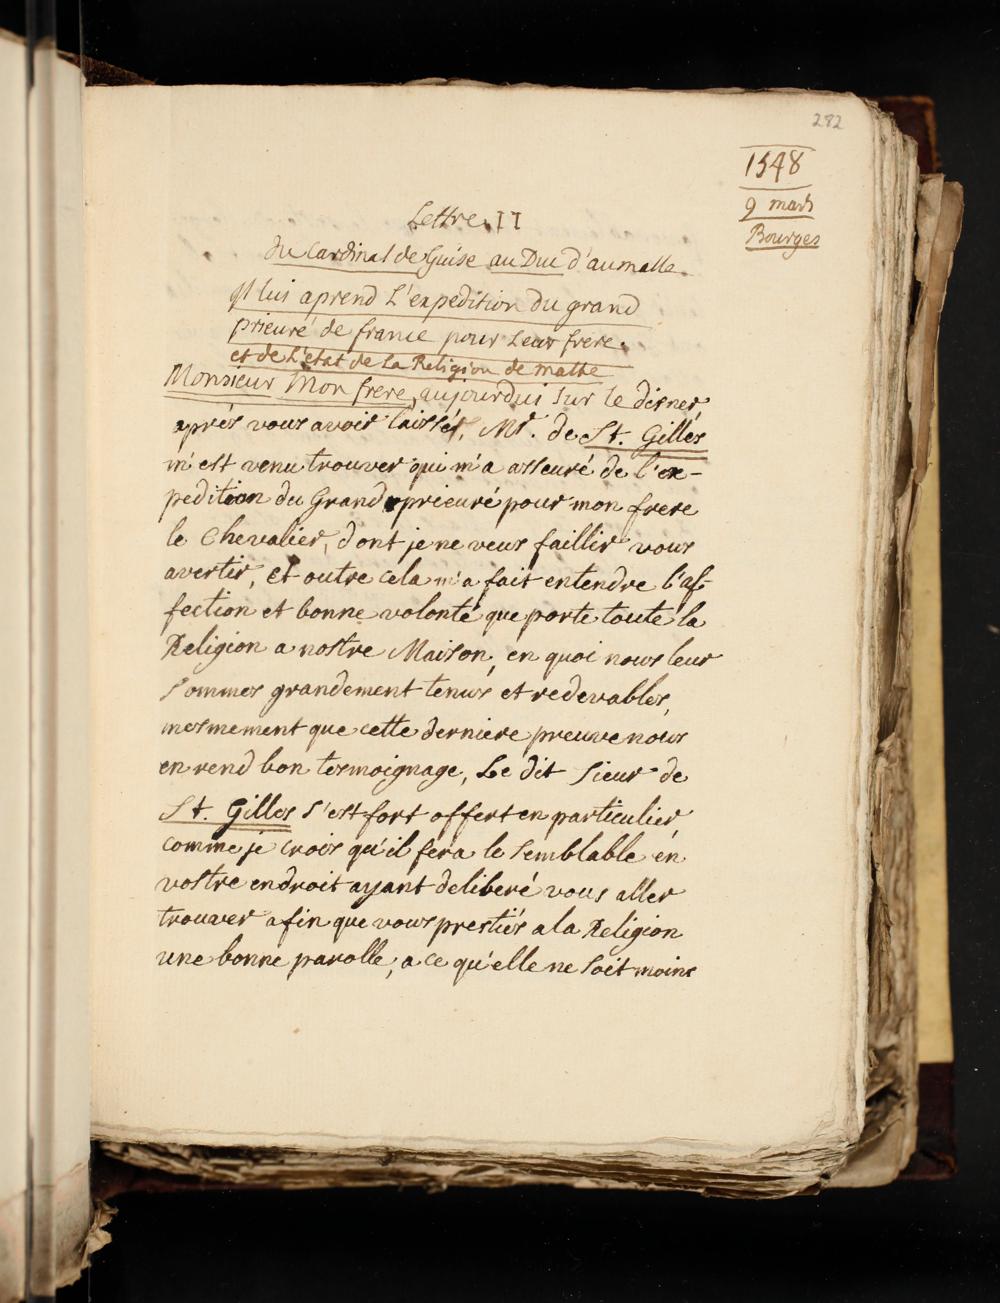 282
1548
9 mars
Bourges
Lettre II
du Cardinal de Guise au Duc d'aumalle.
Il lui aprend L'expedition du grand
prieuré de france pour Leur frere.
et de L'etat de La Religion de malthe
Monsieur Mon frere, aujourdui sur le disner
aprés vous avoir laissés, Mr. de St. Gilles
m'est venu trouver qui m'a asseuré de l'ex-
pedition du Grand prieuré pour mon frere
le Chevalier, dont je ne veus faillir vous
avertir, et outre cela m'a fait entendre l'af-
fection et bonne volonté que porte toute la
Religion a nostre Maison, en quoi nous leur
sommes grandement tenus et redevables,
mesmement que cette derniere preuve nous
en rend bon tesmoignage, Le dit sieur de
St. Gilles s'est fort offert en particulier
comme je crois qu'il fera le semblable en
vostre endroit ayant deliberé vous aller
trouver afin que vous prestiés a la Religion
une bonne parolle, a ce qu'elle ne soit moins